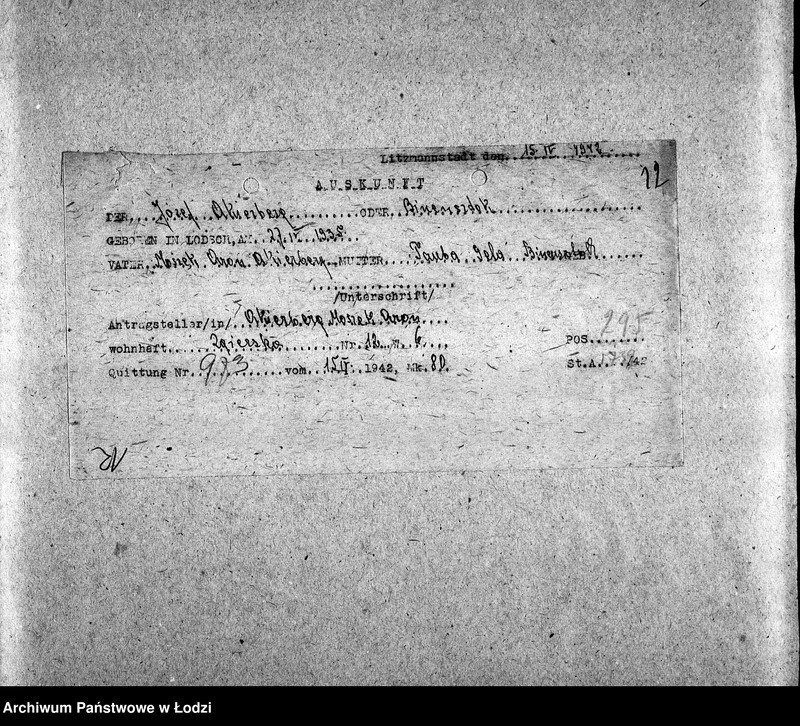 Litzmannstadt den 15. IV 1942
12
AUSKUNFT
DER Josef Akierberg ODER
GEBOREN IN LODSCH, AM 27.
VATER Moszek Aron Akierberg MUTTER Tauba Gela
/Unterschrift/
Antragsteller/in/ Akierberg Moszek Aron
wohnhaft Zgierska Nr. 12 W. 6 POS. 295
Quittung Nr. 973 vom 15 IV 1942, Mk. 80. St.A. /42
Archiwum Państwowe w Łodzi